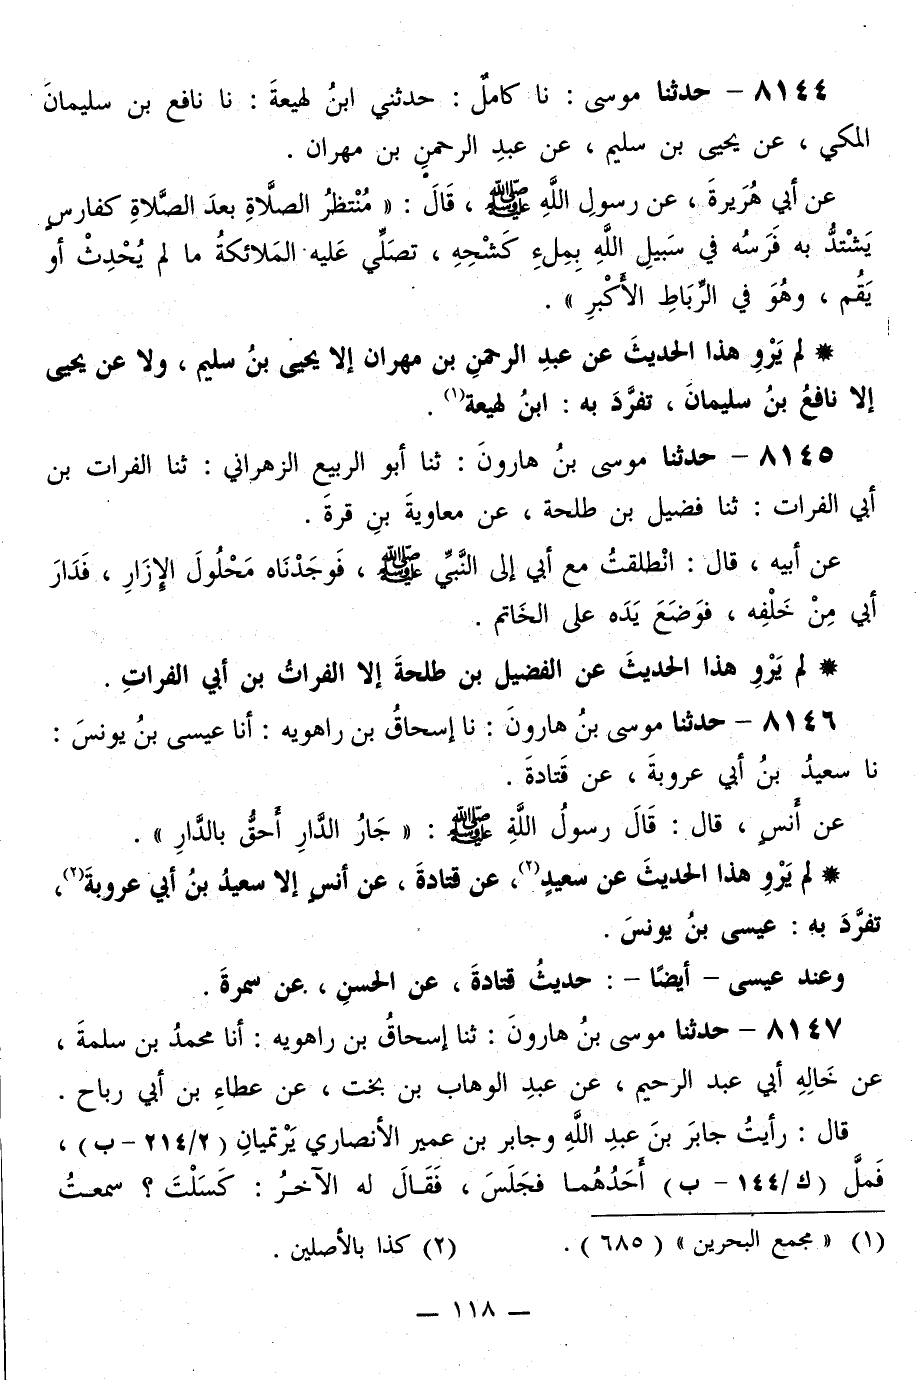 ٨١٤٤ – حدثنا موسى : نا كاملٌ : حدثني ابنُ لهيعةَ : نا نافع بن سليمانَ
المكي ، عن يحيى بن سليم ، عن عبدِ الرحمنِ بن مهران .
عن أبي هُرَيرةَ ، عن رسولِ اللَّهِ ﷺ ، قَالَ : « مُنْتظرُ الصلَّاةِ بعدَ الصَّلاةِ كفارسٍ
يَشْتدُّ به فَرَسُه في سَبيلِ اللَّهِ بِملءِ كَشْحِهِ ، تصلِّي عَليه المَلائكةُ ما لم يُحْدِثْ أو
يَقُم ، وهُوَ في الرِّبَاطِ الأَكْبرِ » .
* لم يَرْوِ هذا الحديثَ عن عبدِ الرحمنِ بن مهران إلا يحيى بنُ سليم ، ولا عن يحيى
إلا نافعُ بنُ سليمانَ ، تفرَّدَ به : ابنُ لهيعة(١) .
٨١٤٥ – حدثنا موسى بنُ هارونَ : ثنا أبو الربيع الزهراني : ثنا الفرات بن
أبي الفرات : ثنا فضيل بن طلحة ، عن معاويةَ بنِ قرةَ .
عن أبيه ، قال : انْطلقتُ مع أبي إلى النَّبيِّ ﷺ ، فَوجَدْنَاه مَحْلُولَ الإِزَارِ ، فَدَارَ
أبي مِنْ خَلْفِه ، فوَضَعَ يَدَه على الخَاتم .
* لم يَرْوِ هذا الحديثَ عن الفضيل بن طلحةَ إلا الفراتُ بن أبي الفراتِ .
٨١٤٦ – حدثنا موسى بنُ هارونَ : نا إسحاقُ بن راهويه : أنا عيسى بنُ يونسَ :
نا سعيدُ بنُ أبي عروبةَ ، عن قَتادةَ .
عن أَنسٍ ، قال : قَالَ رسولُ اللَّهِ ﷺ : « جَارُ الدَّارِ أَحقُّ بالدَّارِ » .
* لم يَرْوِ هذا الحديثَ عن سعيدٍ(٢)، عن قتادةَ ، عن أنسٍ إلا سعيدُ بنُ أبي عروبةَ(٢)،
تفرَّدَ به : عيسى بنُ يونسَ .
وعند عيسى – أيضًا – : حديثُ قتادةَ ، عن الحسنِ ، عن سمرةَ .
٨١٤٧ – حدثنا موسى بنُ هارونَ : ثنا إسحاقُ بن راهويه : أنا محمدُ بن سلمةَ ،
عن خَالِهِ أبي عبد الرحيم ، عن عبدِ الوهاب بن بخت ، عن عطاءِ بن أبي رباح .
قال : رأيتُ جابرَ بنَ عبدِ اللَّهِ وجابر بن عمير الأنصاري يَرْتميانِ ( ٢١٤/٢ – ب ) ،
فَملَّ ( ك /١٤٤ – ب ) أَحَدُهُما فجَلَسَ ، فَقَالَ له الآخرُ : كَسَلْتَ ؟ سمعتُ
(١) « مجمع البحرين » ( ٦٨٥ ) . (٢) كذا بالأصلين .
— ١١٨ —